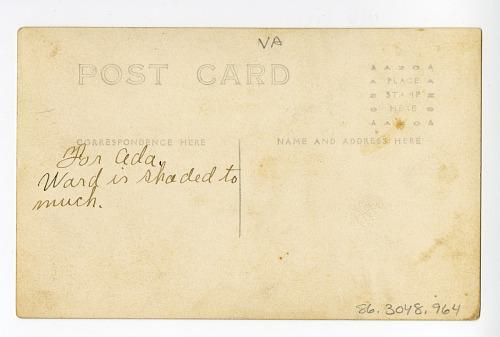 VA
POST CARD
AZO
PLACE
STAMP
HERE
AZO
CORRESPONDENCE HERE
NAME AND ADDRESS HERE
For Ada.
Ward is shaded to
much.
86.3048.964